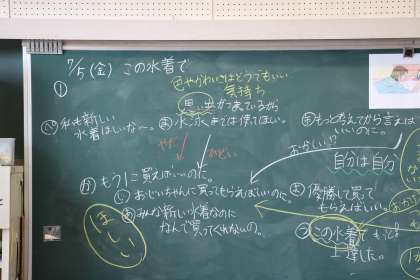 7/5(金) この水着で
①
色やかわいさはどうでもいい
気持ち
思い出がつまっているから
私も新しい
水着ほしいな〜。
やだ
ひどい
もっと考えてから言えば
いいのに。
おかしい?
自分は自分
もう1つ買えばいいのに。
おじいちゃんに買ってもらえばいいのに。
みんな新しい水着なのに
なんで買ってくれないの。
優勝して買って
もらえばいい。
この水着で
上達した。
ほしい